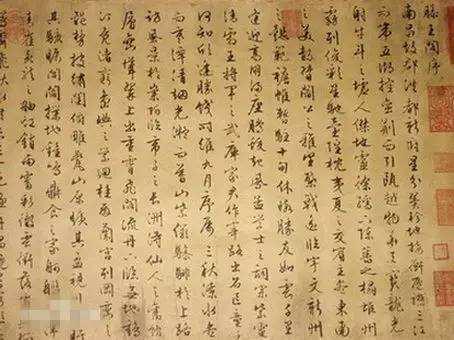 滕王閣序
南昌故郡洪都新府星分翼軫地接衡廬襟三江
而帶五湖控蠻荊而引甌越物華天寶龍光
射牛斗之墟人傑地靈徐孺下陳蕃之榻雄州
霧列俊彩星馳臺隍枕夷夏之交賓主盡東南
之美都督閻公之雅望棨戟遙臨宇文新州
之懿範襜帷暫駐十旬休暇勝友如雲千里
逢迎高朋滿座騰蛟起鳳孟學士之詞宗紫電
清霜王將軍之武庫家君作宰路出名區童子
何知躬逢勝餞時維九月序屬三秋潦水盡
而寒潭清煙光凝而暮山紫儼驂騑於上路
訪風景於崇阿臨帝子之長洲得仙人之舊館
層巒聳翠上出重霄飛閣流丹下臨無地鶴
汀鳧渚窮島嶼之縈迴桂殿蘭宮列岡巒之
體勢披繡闥俯雕甍山原曠其盈視川澤
盱其駭矚閭閻撲地鐘鳴鼎食之家舸艦
迷津青雀黃龍之舳虹銷雨霽彩徹雲衢落霞